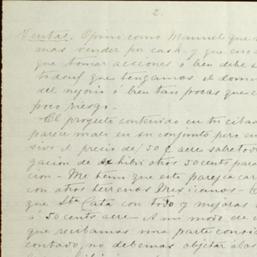 2.
Ventas. Opino como Manuel que
mas vender por cash y que en
que tomar acciones ó bien debe s
tengamos el domin
del negocio ó bien tan pocas que
poco riesgo.
El proyecto contenido en tu citada
parece malo en su conjunto pero
sivo el precio de 50 ¢ acre sobre todo
gación de exhibir otros 50 cents para
cion - Me temo que esto parezca caro
con otros terrenos Mexicanos -
que Sta Cata con todo y mejoras
á 50 cents acre. A mi modo de
que recibamos una parte consid
contado, no debemos objetar á las